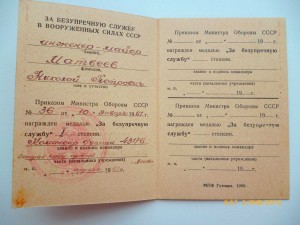 ЗА БЕЗУПРЕЧНУЮ СЛУЖБУ
В ВООРУЖЕННЫХ СИЛАХ СССР
инженер-майор
звание
Матвеев
фамилия
Николай
имя и отчество
Приказом Министра Обороны СССР
№ 36 от „10" января 1967 г.
награжден медалью „За безупречную
службу" I степени.
звание и подпись командира
части (начальника учреждения)
М. П.
Приказом Министра Обороны СССР
№ от „ " 19 г.
награжден медалью „За безупречную
службу" степени.
звание и подпись командира
части (начальника учреждения)
М. П.
„ " 19 г.
Приказом Министра Обороны СССР
№ от „ " 19 г.
награжден медалью „За безупречную
службу" степени.
звание и подпись командира
части (начальника учреждения)
М. П.
„ " 19 г.